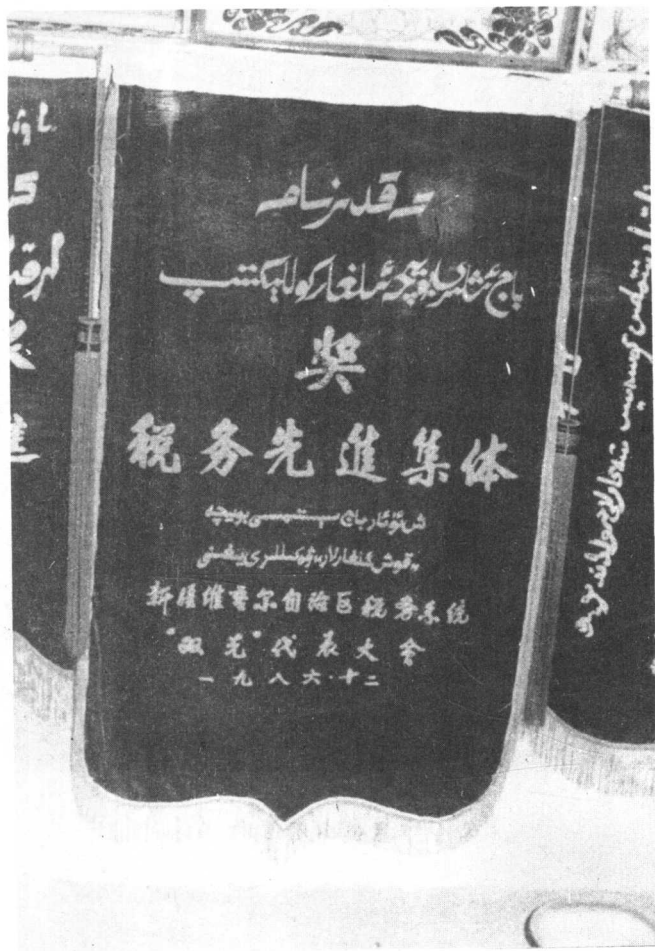 تەقدىرنامە
پاج ئىشلىرى بويىچە ئىلغار كوللېكتىپ
奖
税务先進集体
ش ئۇ ئا ر باج سىستېمىسى بويىچە
«قوش ئىلغارلار» ۋەكىللىرى يىغىنى
新疆维吾尔自治区税务系统
“双先”代表大会
一九八六·十二
進